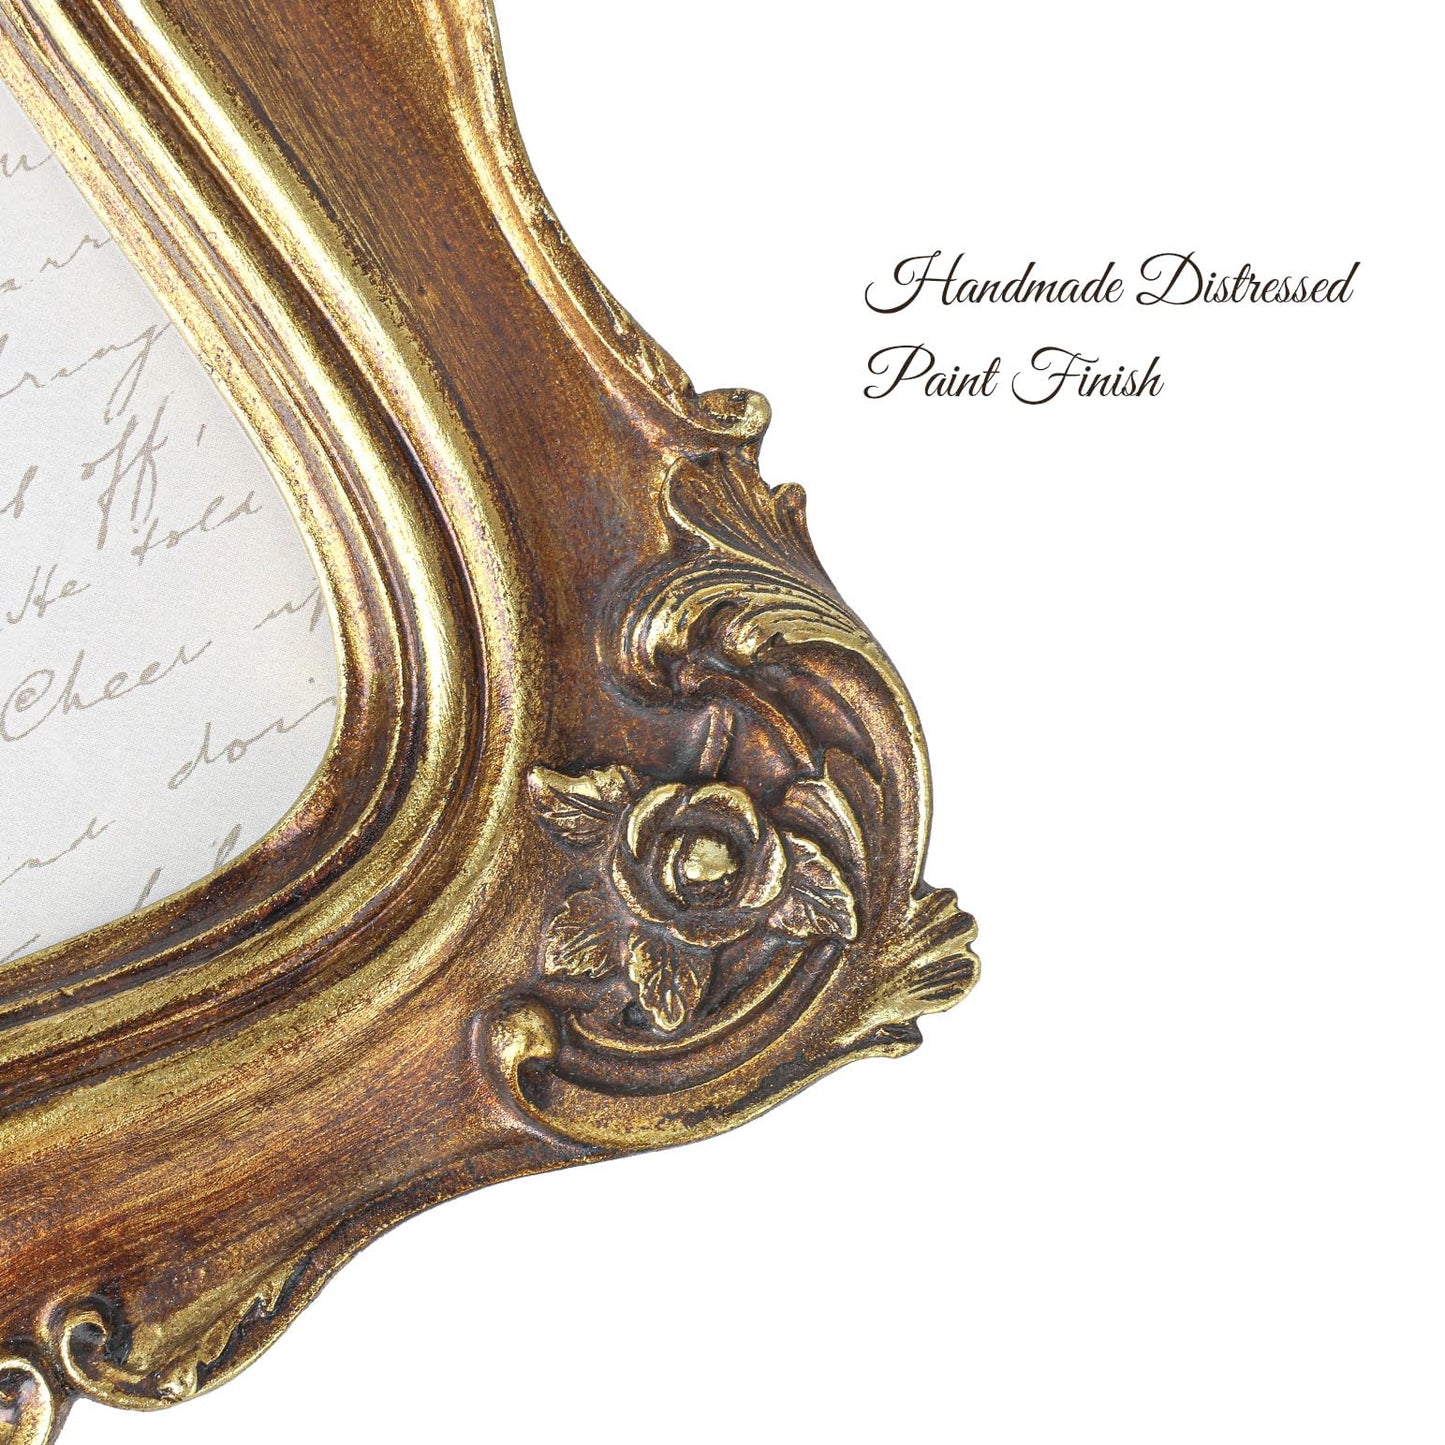 Handmade Distressed
Paint Finish
off'
He told
Cheer up